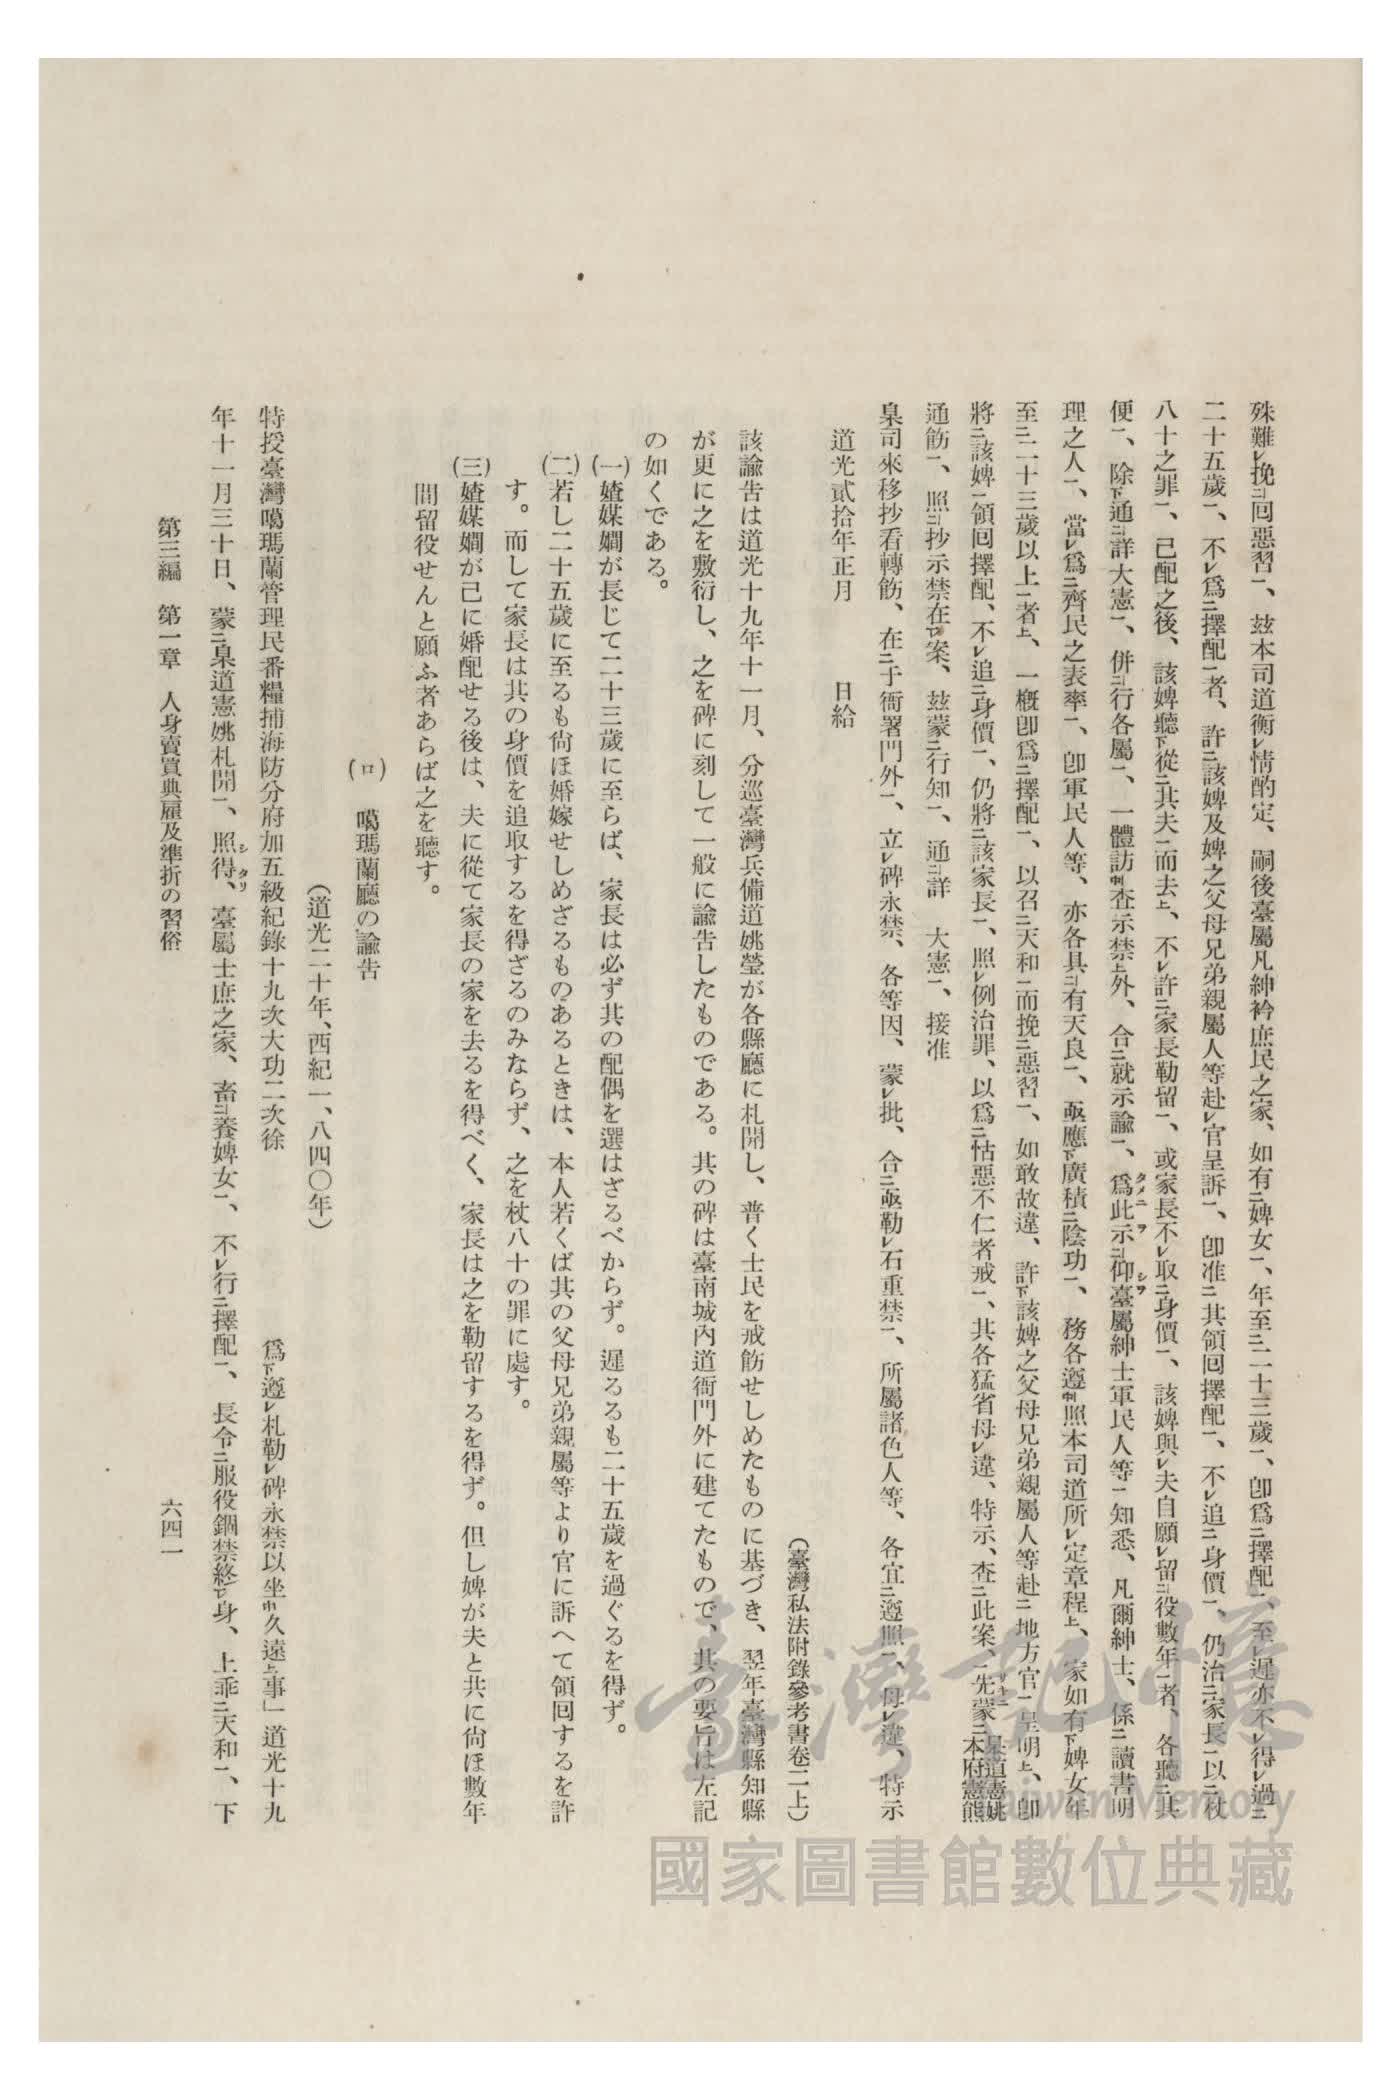 殊難レ挽二回惡習一、玆本司道衡レ情酌定、嗣後臺屬凡紳衿庶民之家、如有二婢女一、年至二二十三歲一、卽爲二擇配一、至レ遲亦不レ得レ過二
二十五歲一、不レ爲二擇配一者、許二該婢及婢之父母兄弟親屬人等赴レ官呈訴一、卽准二其領回擇配一、不レ追二身價一、仍治二家長一以二杖
八十之罪一、已配之後、該婢聽下從二其夫一而去上、不レ許二家長勒留一、或家長不レ取二身價一、該婢與レ夫自願レ留二役數年一者、各聽二其
便一、除下通二詳大憲一、併二行各屬一、一體訪中查示禁上外、合二就示諭一、爲タメニ此示ヲ二仰シテ臺屬紳士軍民人等一知悉、凡爾紳士、係二讀書明
理之人一、當レ爲二齊民之表率一、卽軍民人等、亦各具二有天良一、亟應下廣積二陰功一、務各遵中照本司道所レ定章程上、家如有下婢女年
至二二十三歲以上一者上、一槪卽爲二擇配一、以召二天和一而挽二惡習一、如敢故違、許下該婢之父母兄弟親屬人等赴二地方官一呈明上、卽
將二該婢一領回擇配、不レ追二身價一、仍將二該家長一、照レ例治罪、以爲二怙惡不仁者戒一、其各猛省毋レ違、特示、查二此案、先サキニ蒙二臬道憲姚本府憲熊
通飭一、照二抄示禁在レ案、玆蒙二行知一、通二詳　大憲一、接准
臬司來移抄看轉飭、在二于衙署門外一、立レ碑永禁、各等因、蒙レ批、合二亟勒レ石重禁一、所屬諸色人等、各宜二遵照一、毋レ違、特示
道光貳拾年正月　　　日給
（臺灣私法附錄參考書卷二上）
該諭告は道光十九年十一月、分巡臺灣兵備道姚瑩が各縣廳に札開し、普く士民を戒飭せしめたものに基づき、翌年臺灣縣知縣
が更に之を敷衍し、之を碑に刻して一般に諭告したものである。其の碑は臺南城內道衙門外に建てたもので、其の要旨は左記
の如くである。
（一）嬪媒嫺が長じて二十三歲に至らば、家長は必ず其の配偶を選はざるべからず。遲るるも二十五歲を過ぐるを得ず。
（二）若し二十五歲に至るも尙ほ婚嫁せしめざるものあるときは、本人若くば其の父母兄弟親屬等より官に訴へて領回するを許
す。而して家長は其の身價を追取するを得ざるのみならず、之を杖八十の罪に處す。
（三）媒嫺が已に婚配せる後は、夫に從て家長の家を去るを得べく、家長は之を勒留するを得ず。但し婢が夫と共に尙ほ數年
間留役せんと願ふ者あらば之を聽す。
（ロ）　噶瑪蘭廳の諭告
（道光二十年、西紀一、八四〇年）
特授臺灣噶瑪蘭管理民番糧捕海防分府加五級紀錄十九次大功二次徐　　　爲下遵レ札勒レ碑永禁以垂中久遠上事」道光十九
年十一月三十日、蒙二臬道憲姚札開一、照得シタリ、臺屬士庶之家、畜二養婢女一、不レ行二擇配一、長令二服役錮禁終レ身、上乖二天和一、下
第三編　第一章　人身賣買典雇及準折の習俗
六四一
臺灣記憶
Taiwan Memory
國家圖書館數位典藏